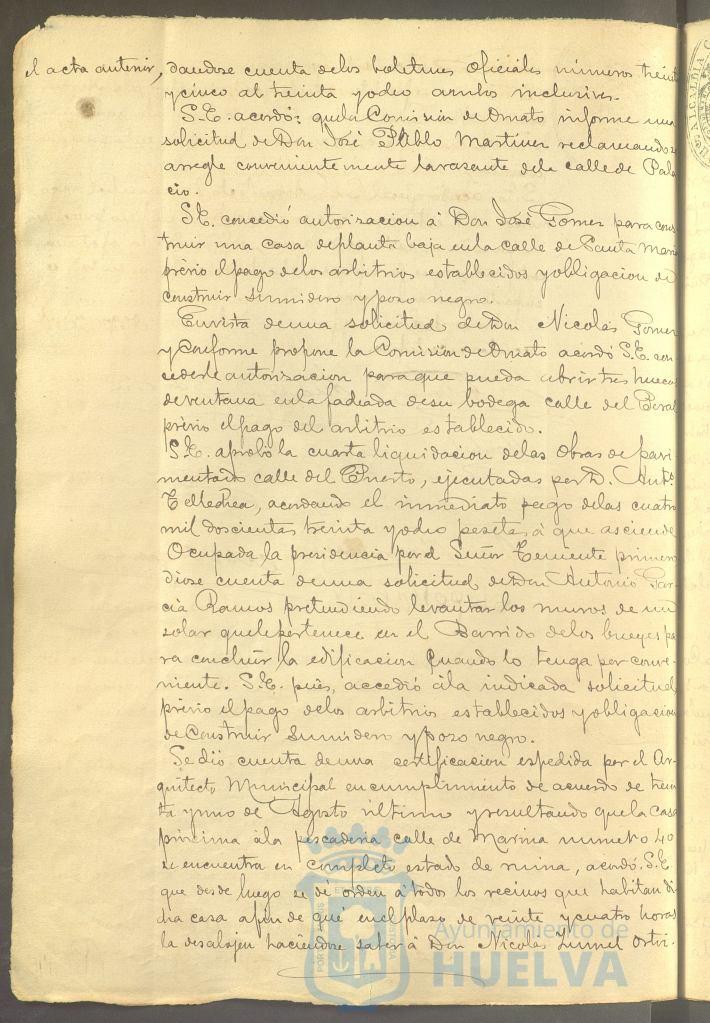 el acta anterior, dandose cuenta delos boletines oficiales números treinta
y cinco al treinta y ocho ambos inclusives.
S.E. acordó: que la Comision de Ornato informe una
solicitud de Don José Pablo Martinez reclamando se
arregle convenientemente la rasante dela calle de Pala
cio.
S.E. concedió autorizacion á Don José Gomez para cons
truir una casa de planta baja en la calle de Santa Maria
prévio el pago delos arbitrios establecidos y obligacion de
construir sumidero y pozo negro.
En vista de una solicitud de Don Nicolás Gomez
y conforme propone la Comision de Ornato acordó S.E. con
cederle autorizacion para que pueda abrir tres huecos
de ventana en la fachada desu bodega calle del
prévio el pago del arbitrio establecido.
S.E. aprobó la cuarta liquidacion delas obras de pavi
mentado calle del Puerto, ejecutadas por D. Antº
Tellechea, acordando el inmediato pago delas cuatro
mil doscientas treinta y ocho pesetas á que asciende
Ocupada la presidencia por el Señor Teniente primero
diose cuenta de una solicitud de Don Antonio Gar-
cía Ramos pretendiendo levantar los muros de un
solar que le pertenece en el Barrido delos bueyes pa
ra concluir la edificacion cuando lo tenga por conve-
niente. S.E. pues, accedió á la indicada solicitud
prévio el pago delos arbitrios establecidos y obligacion
de construir sumidero y pozo negro.
Se dió cuenta de una certificacion espedida por el Ar-
quitecto Municipal en cumplimiento de acuerdo de trein
ta y uno de Agosto último y resultando que la casa
próxima á la pescaderia calle de Marina numero 40
se encuentra en completo estado de ruina, acordó S.E.
que desde luego se dé orden á todos los vecinos que habitan di
cha casa á fin de que en el plazo de veinte y cuatro horas
la desalojen haciendose saber á Don Nicolás Ortiz.
Ayuntamiento de
HUELVA